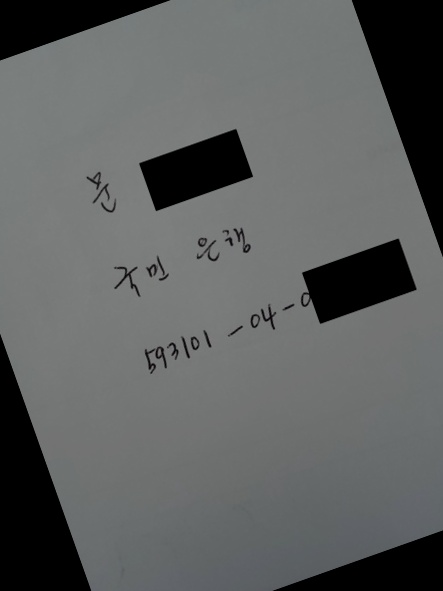 국민 은행
593101-04-0